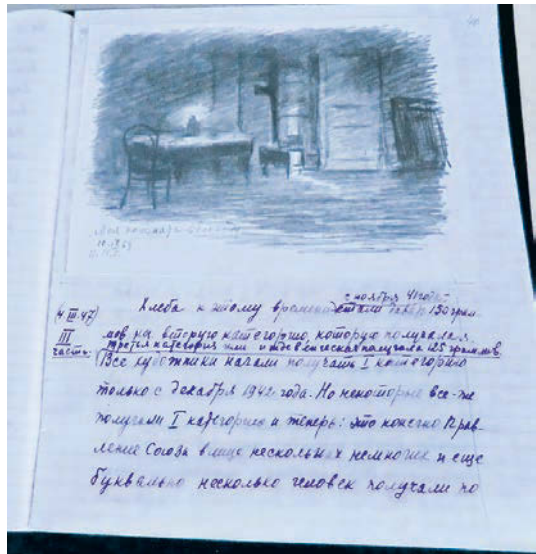 40
Моя комната
с ноября 41 года
(4.III.47) Хлеба к этому времени стали 150 грам-
III мов на вторую категорию, которую получала я.
часть. третья категория или иждивенческая получала 125 граммов.
(Все художники начали получать I категорию
только с декабря 1942 года. Но некоторые все-же
получали I категорию и теперь: это конечно Прав-
ление Союза в лице нескольких немногих и еще
буквально несколько человек получали по